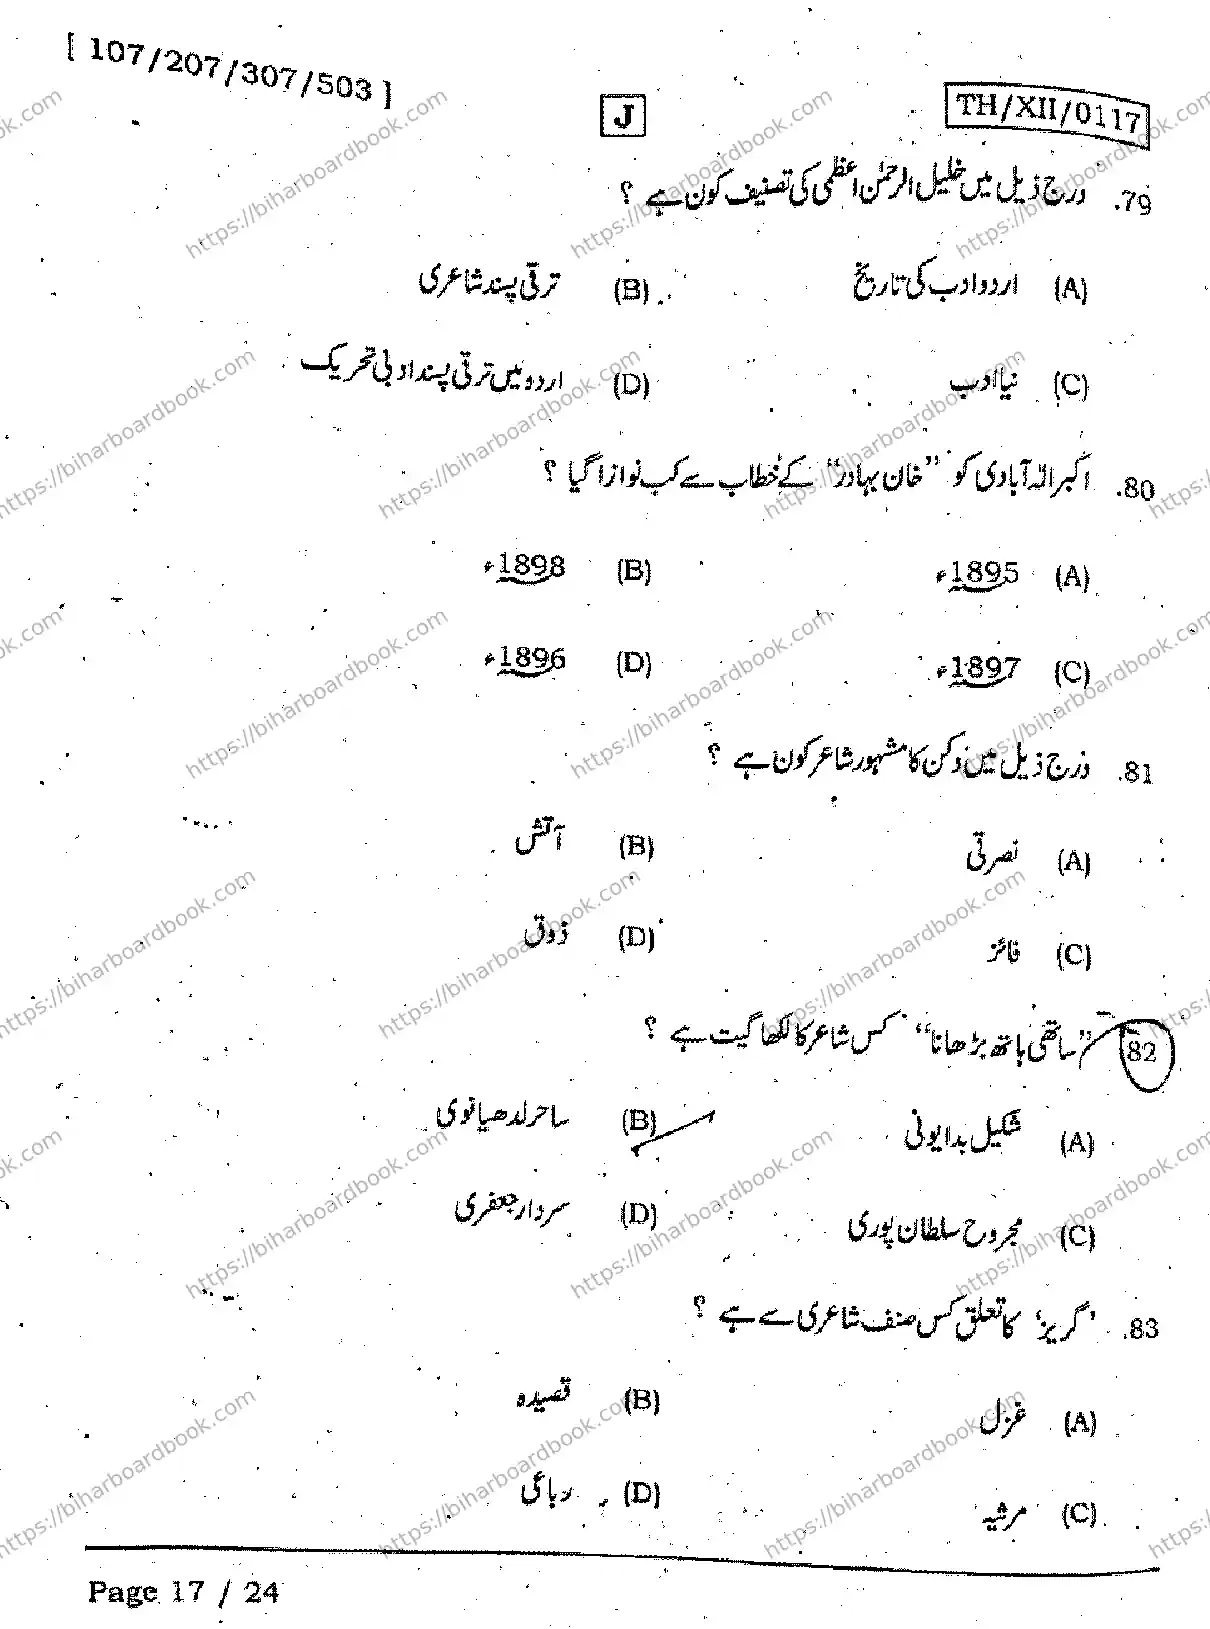 [ 107/207/307/503 ]
J
TH/XII/0117
79. درج ذیل میں خلیل الرحمٰن اعظمی کی تصنیف کون ہے ؟
(A) اردو ادب کی تاریخ (B) ترقی پسند شاعری
(C) نیا ادب (D) اردو میں ترقی پسند ادبی تحریک
80. اکبر الٰہ آبادی کو ”خان بہادر“ کے خطاب سے کب نوازا گیا ؟
(A) 1895ء (B) 1898ء
(C) 1897ء (D) 1896ء
81. درج ذیل میں دکن کا مشہور شاعر کون ہے ؟
(A) نصرتی (B) آتش
(C) فائز (D) ذوق
82. ”ساتھی ہاتھ بڑھانا“ کس شاعر کا لکھا گیت ہے ؟
(A) شکیل بدایونی (B) ساحر لدھیانوی
(C) مجروح سلطان پوری (D) سردار جعفری
83. ’گریز‘ کا تعلق کس صنف شاعری سے ہے ؟
(A) غزل (B) قصیدہ
(C) مرثیہ (D) رباعی
Page 17 / 24
https://biharboardbook.com